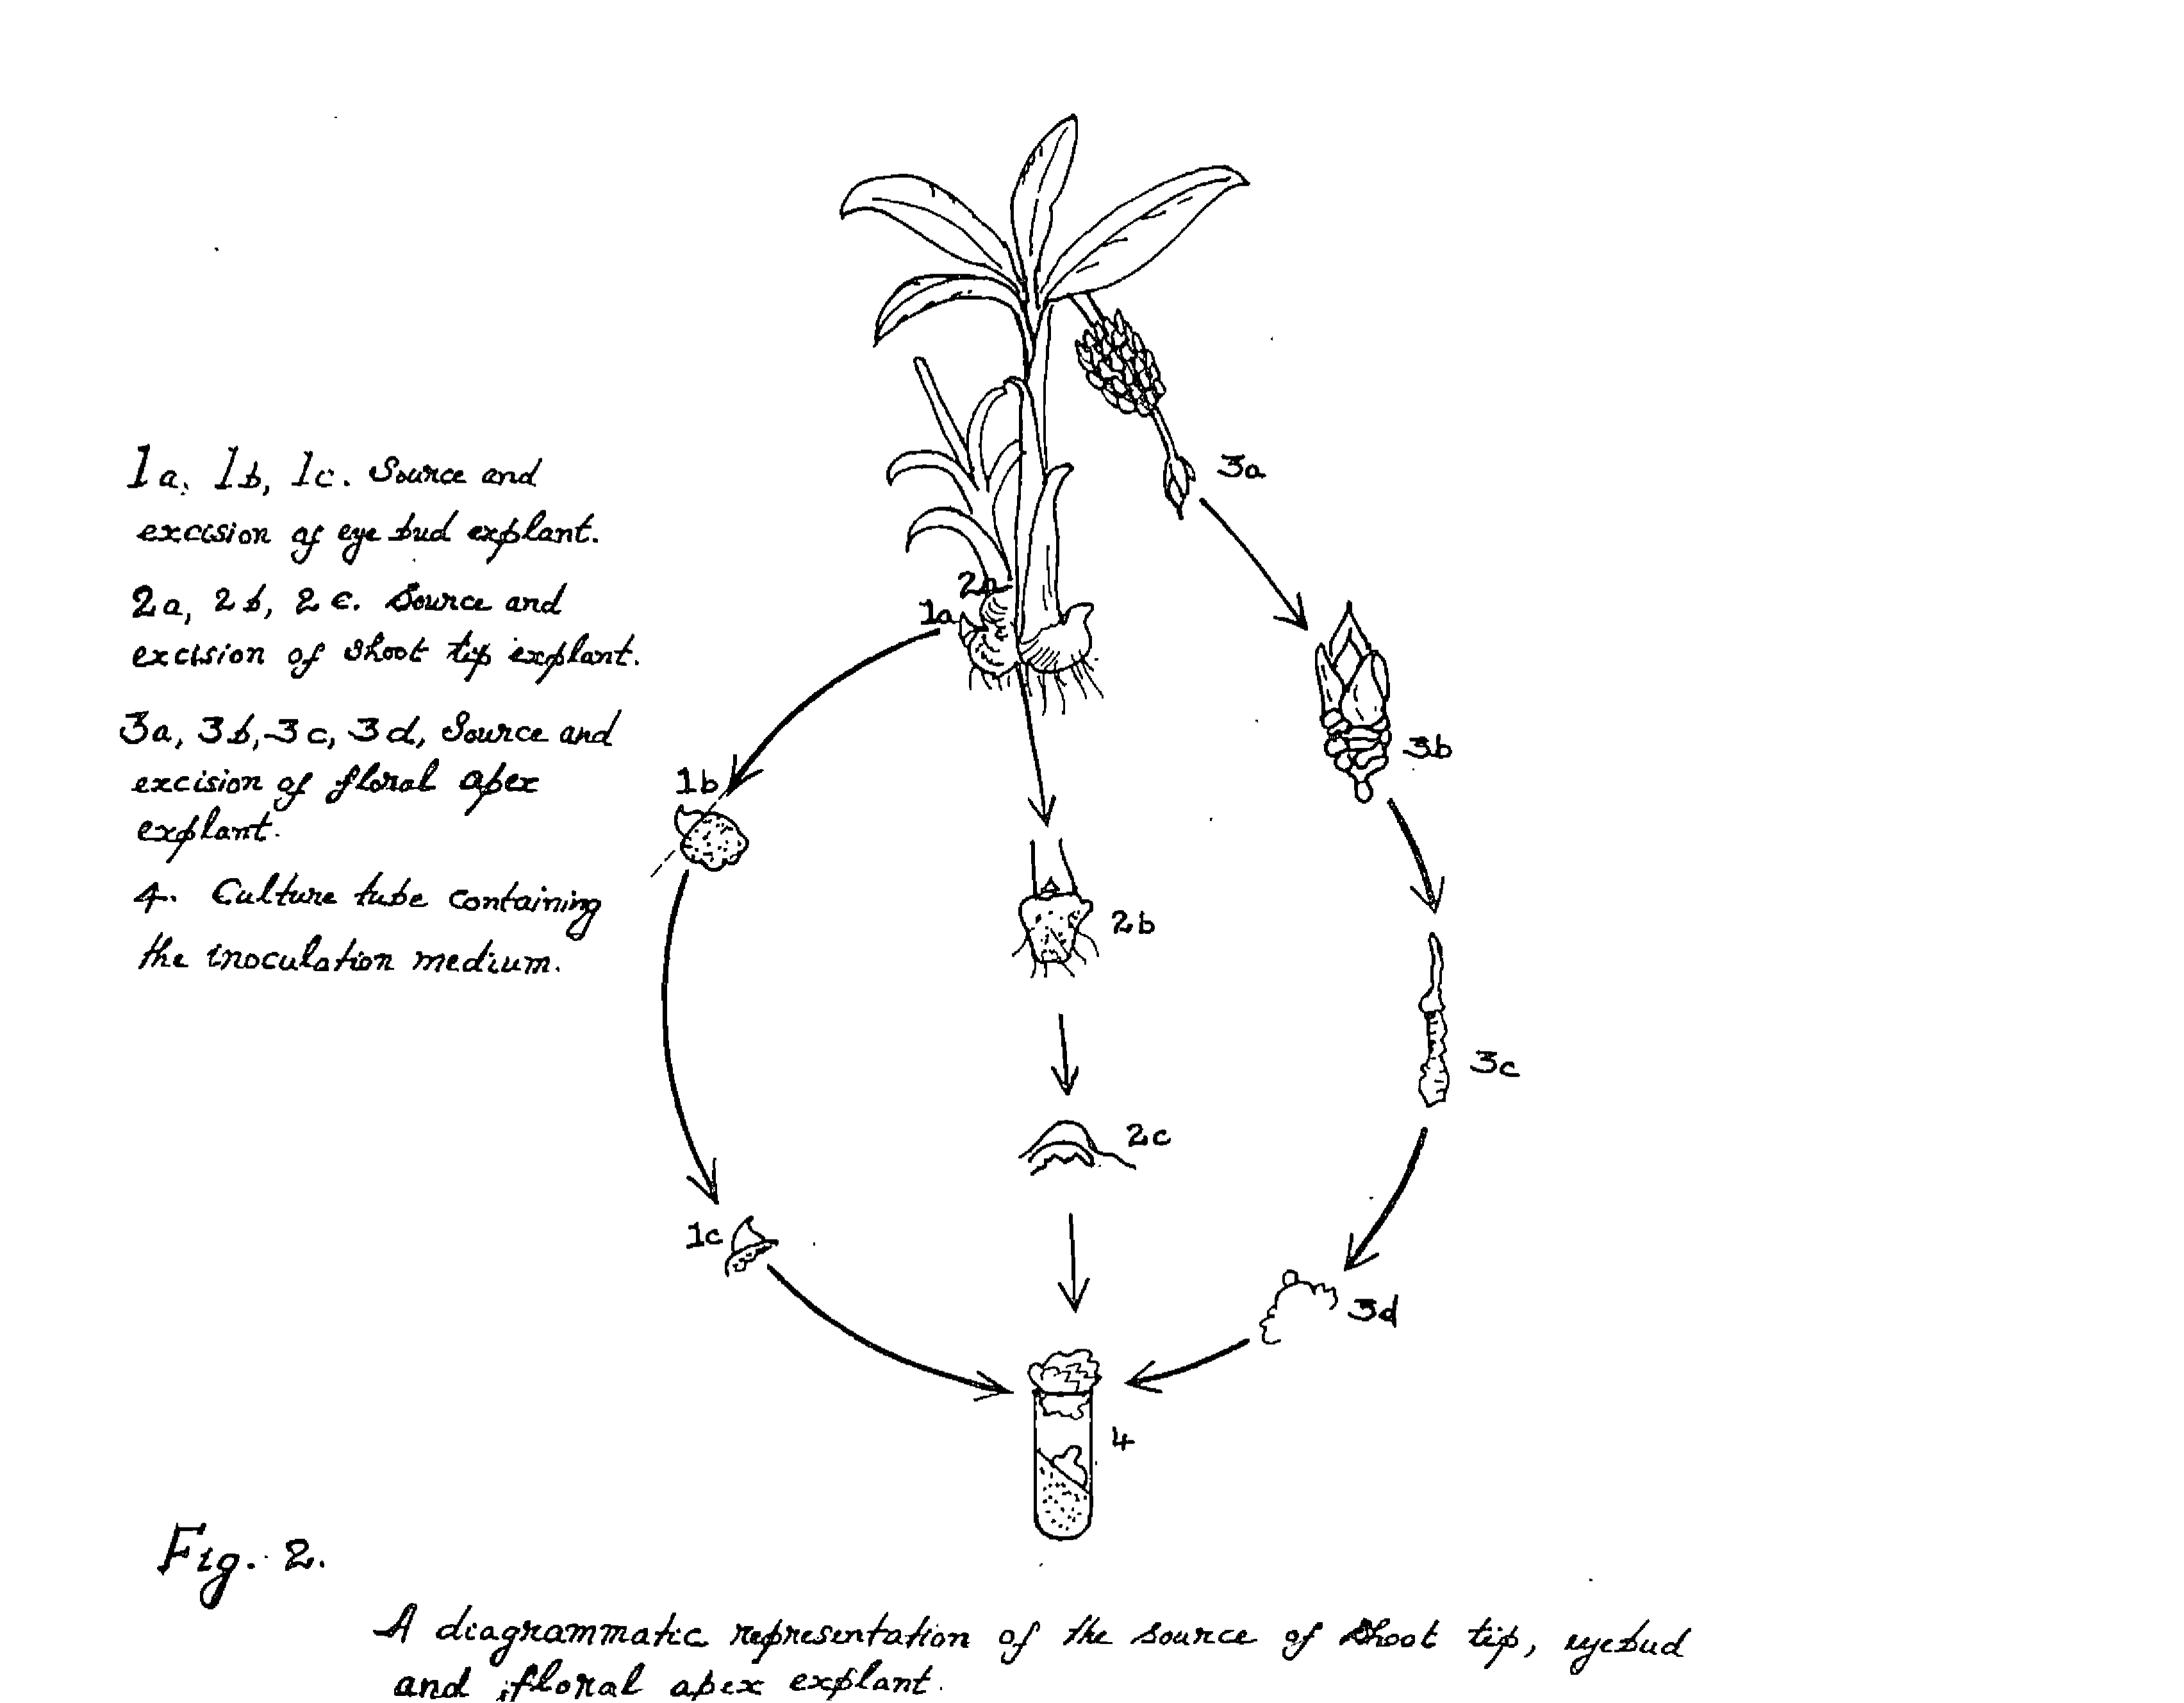 1a, 1b, 1c. Source and
excision of eye bud explant.
2a, 2b, 2c. Source and
excision of shoot tip explant.
3a, 3b, 3c, 3d, Source and
excision of floral apex
explant.
4. Culture tube containing
the inoculation medium.
3a
2a
1a
3b
1b
2b
3c
2c
1c
3d
4
Fig. 2.
A diagrammatic representation of the source of shoot tip, eyebud
and floral apex explant.